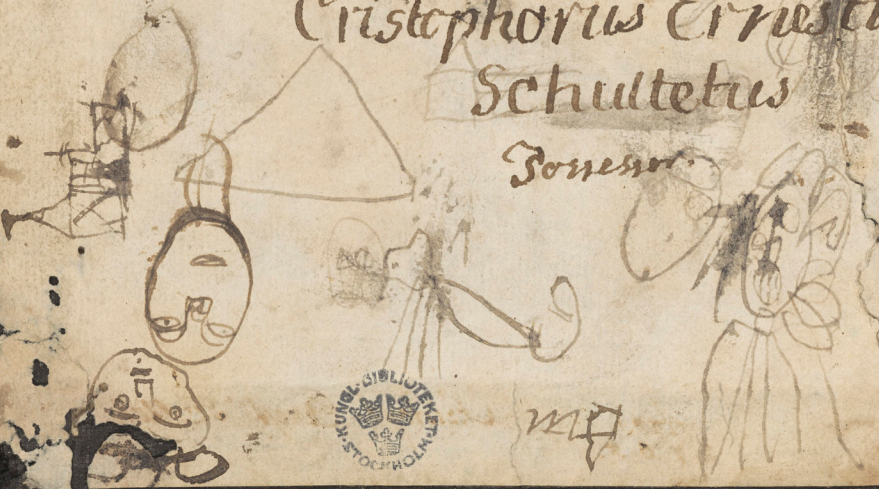 Cristophorus Ernesti
Schultetus
Possessor.
KUNGL. BIBLIOTEKET
STOCKHOLM